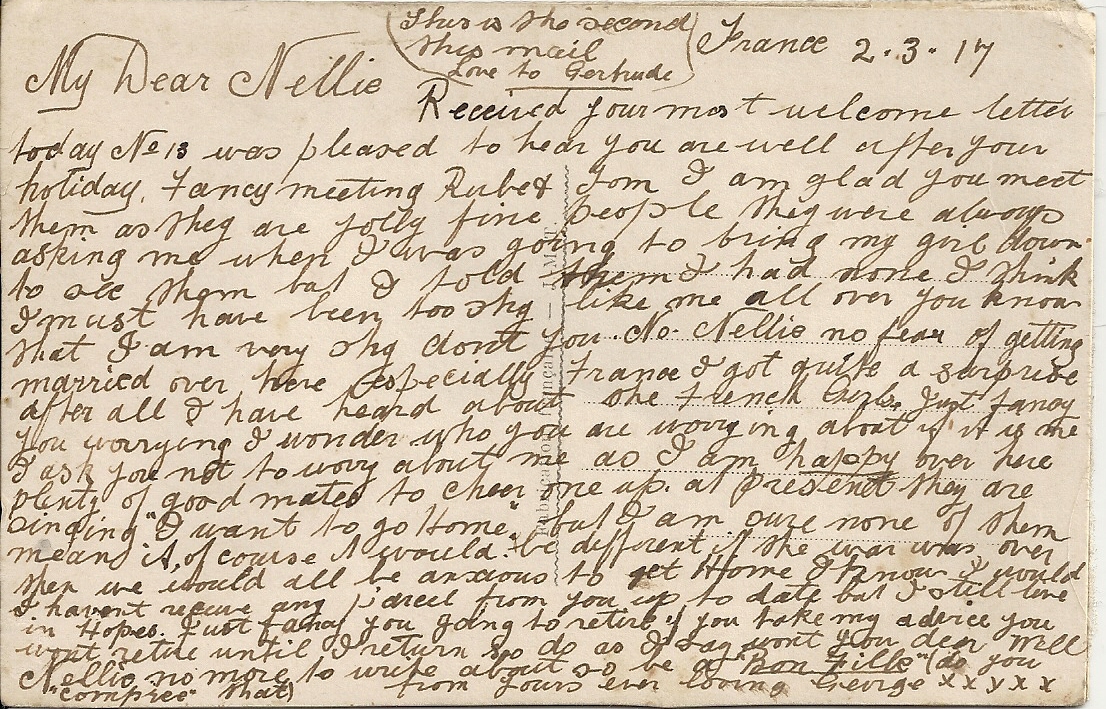 (This is the second
this mail
Love to Gertrude)
France 2.3.17
My Dear Nellie
Received your most welcome letter
today No 13 was pleased to hear you are well after your
holiday. Fancy meeting Rube & Tom I am glad you meet
them as they are jolly fine people they were always
asking me when I was going to bring my girl down
to see them but I told them I had none I think
I must have been too shy like me all over you know
that I am very shy dont you. No. Nellie no fear of getting
married over here especially France I got quite a surprise
after all I have heard about the French Girls. Just fancy
you worrying I wonder who you are worrying about if it is me
I ask you not to worry about me as I am happy over here
plenty of good mates to cheer me up. at present they are
singing "I want to go Home" but I am sure none of them
means it, of course it would be different if the war was over
then we would all be anxious to get Home I know I would
I havent receive any parcel from you up to date but I still live
in Hopes. Just fancy you going to retire if you take my advice you
wont retire until I return so do as I say wont you dear. Well
Nellie no more to write about so be a "Bon Fille" (do you
"compree" that) from yours ever loving George x x y x x
Fabrication Française